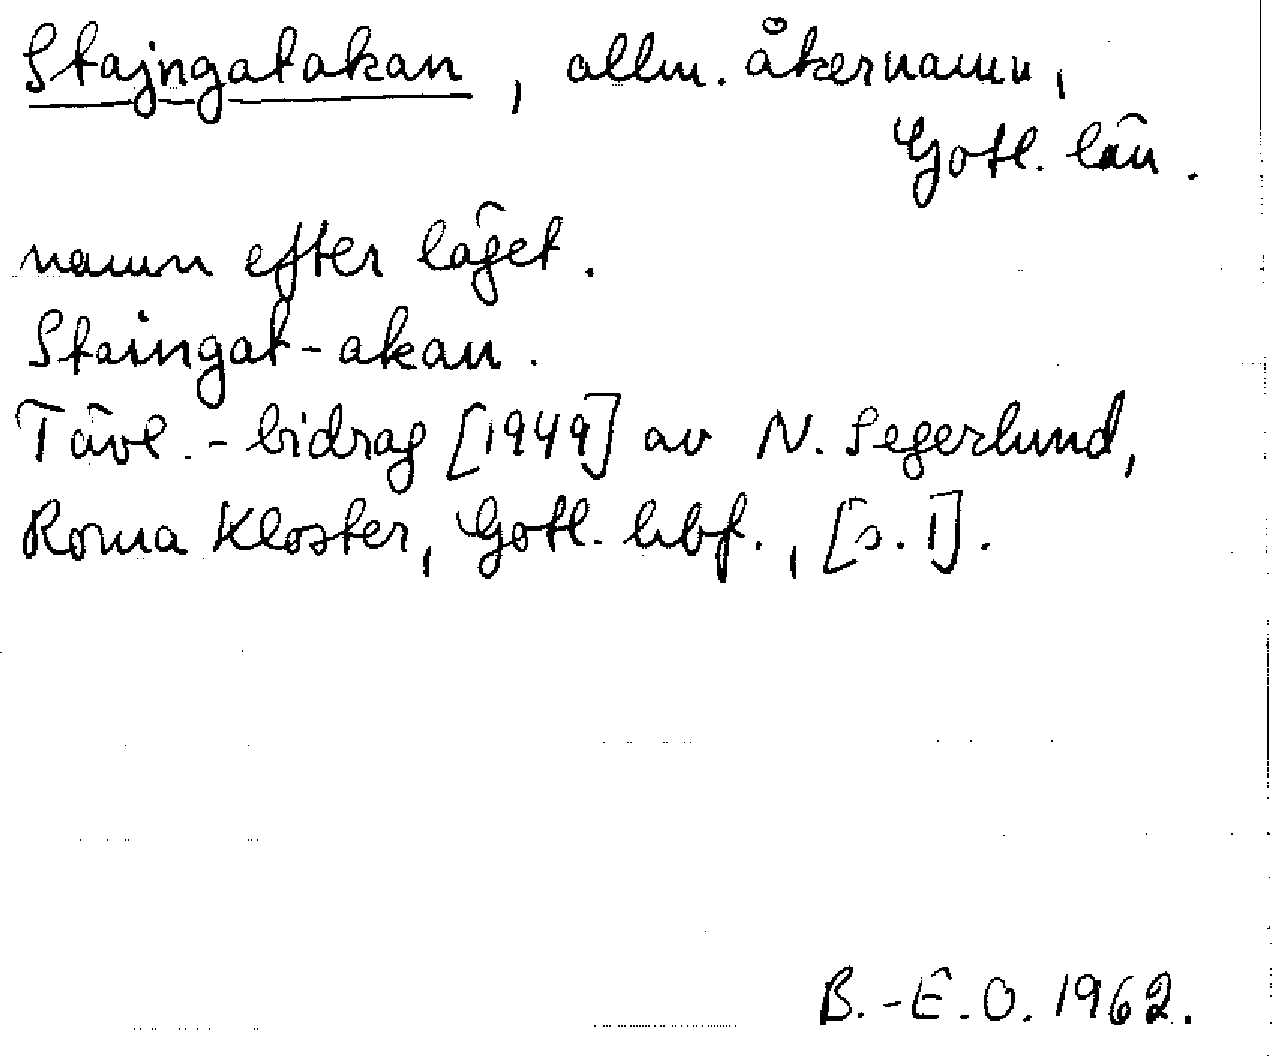 Stajngatakan, allm. åkernamn,
Gotl. län.
namn efter läget.
Staingat-akan.
Tävl.-bidrag [1949] av N. Segerlund,
Roma Kloster, Gotl. hbf., [s. 1].
B.-E.O. 1962.